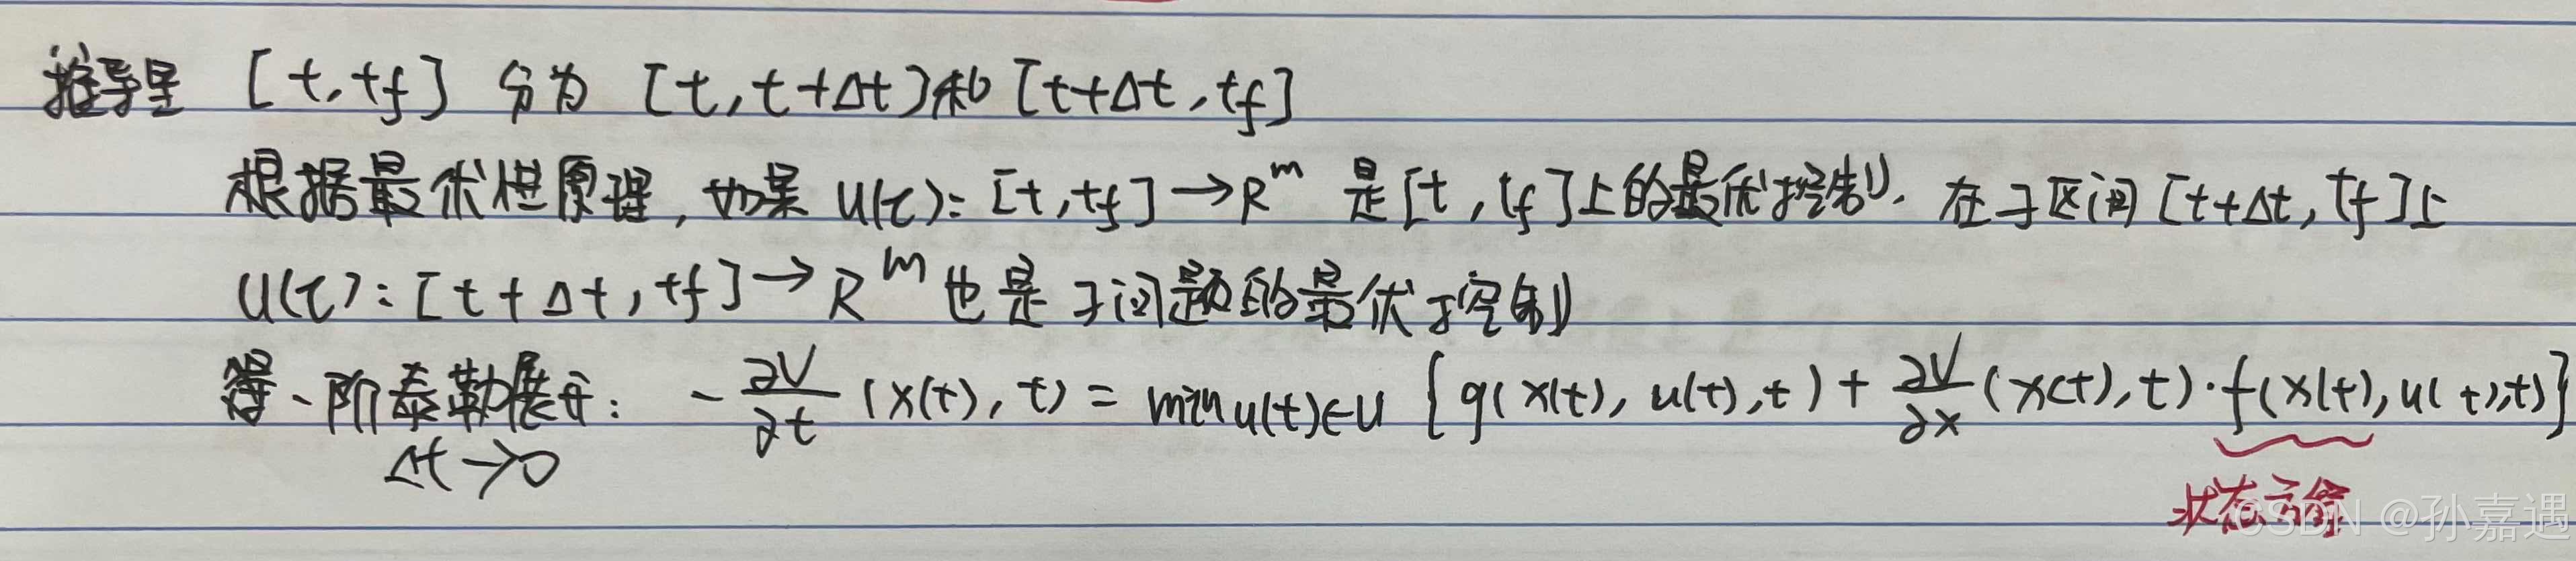 推导是 [t, tf] 分为 [t, t+Δt] 和 [t+Δt, tf]
根据最优性原理, 如果 u(τ): [t, tf] → R^m 是[t, tf]上的最优控制. 在子区间 [t+Δt, tf]上
u(τ): [t+Δt, tf] → R^m 也是子问题的最优控制
得一阶泰勒展开: -∂V/∂t (x(t), t) = min u(t)∈U [g(x(t), u(t), t) + ∂V/∂x (x(t), t)·f(x(t), u(t), t)]
Δt→0
状态方程
CSDN @孙嘉遇